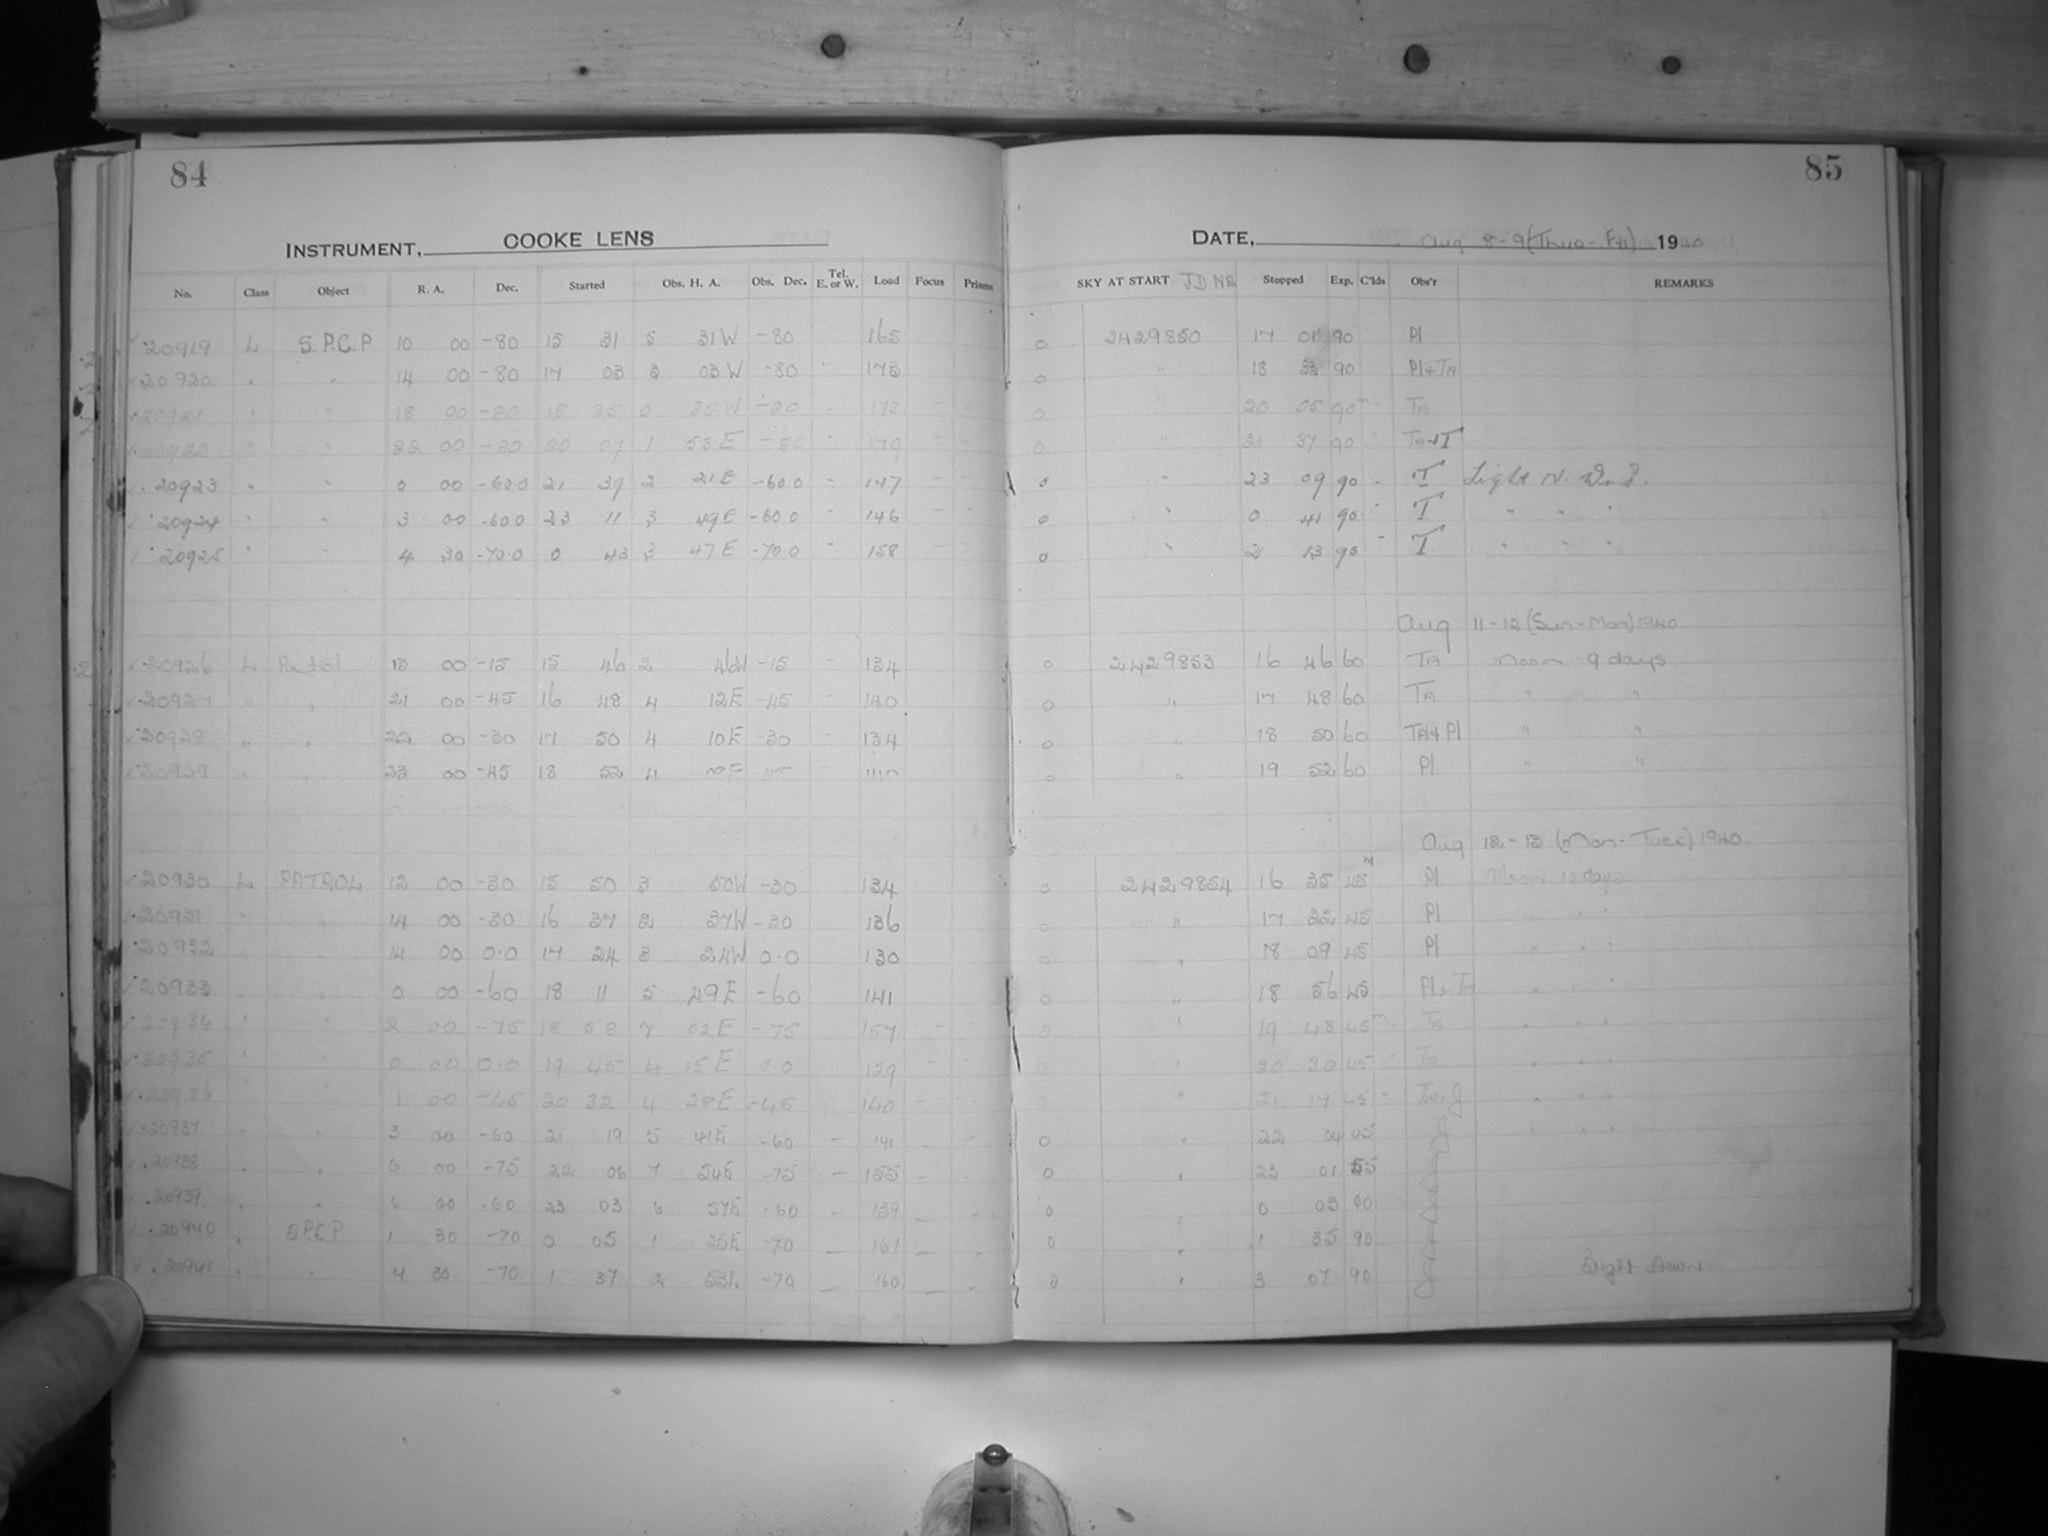 84
INSTRUMENT, COOKE LENS
No. Class Object R. A. Dec. Started Obs. H. A. Obs. Dec. Tel. E. or W. Load Focus Prisms
20919 L S.P.C.P 10 00 -80 15 31 5 31W -80 165
20920 " " 14 00 -80 17 03 3 03W -80 173
20921 " " 18 00 -80 18 35 0 35W -80 - - -
" " 22 00 -80 20 07 1 53E -80 - 179 - -
20923 " " 0 00 -60.0 21 39 2 21E -60.0 - 147 - -
20924 " " 3 00 -60.0 23 11 3 49E -60.0 - 146 - -
20925 " " 4 30 -70.0 0 43 3 47E -70.0 - 158 - -
20926 L Patrol 13 00 -15 15 46 2 46W -15 - 134
20927 " " 21 00 -45 16 48 4 12E -45 - 140
20928 " " 22 00 -30 17 50 4 10E -30 - 134
20929 " " 23 00 -45 18 52 4
20930 L PATROL 12 00 -30 15 50 3 50W -30 134
20931 " " 14 00 -30 16 37 2 37W -30 136
20932 " " 14 00 0.0 17 24 3 24W 0.0 130
20933 " " 0 00 -60 18 11 5 49E -60 141
20934 " " 2 00 -75 18 58 7 02E -75 157 - -
20935 " " 0 00 0.0 19 45 4 15E 0.0 129 - -
20936 " " 1 00 -45 20 32 4 28E -45 140 - -
20937 " " 3 00 -60 21 19 5 41E -60 - 141 - -
20938 " " 6 00 -75 22 06 7 54E -75 - 155 - -
20939 " " 6 00 -60 23 03 6 57E -60 - 139 - -
20940 " S.P.C.P 1 30 -70 0 05 1 25E -70 - 161 - -
20941 " " 4 30 -70 1 37 2 53E -70 - 160 - -
85
DATE, Aug 8-9 (Thur-Fri) 1940
SKY AT START JD No Stopped Exp. C'lds Obs'r REMARKS
0 2429850 17 01 90 Pl
0 " 18 33 90 Pl+TA
0 " 20 05 90m - TA
0 " 21 37 90 - TA+T
0 " 23 09 90 - T Light N. Wind.
0 " 0 41 90 - T " " "
0 " 2 13 90 - T " " "
Aug 11-12 (Sun-Mon) 1940
0 2429853 16 46 60 TA Moon 9 days
0 " 17 48 60 TA " "
0 " 18 50 60 TA+Pl " "
0 " 19 52 60 Pl " "
Aug 12-13 (Mon-Tues) 1940
0 2429854 16 35 45m Pl Moon 10 days
0 " 17 22 45 Pl " "
0 " 18 09 45 Pl " "
0 " 18 56 45 Pl+TA " "
0 " 19 43 45m TA " "
0 " 20 30 45 - TA " "
0 " 21 17 45 - TA+J " "
0 " 22 04 45 J " "
0 " 23 01 55
0 " 0 03 60
0 " 1 35 90
0 " 3 07 90 Bright Dawn